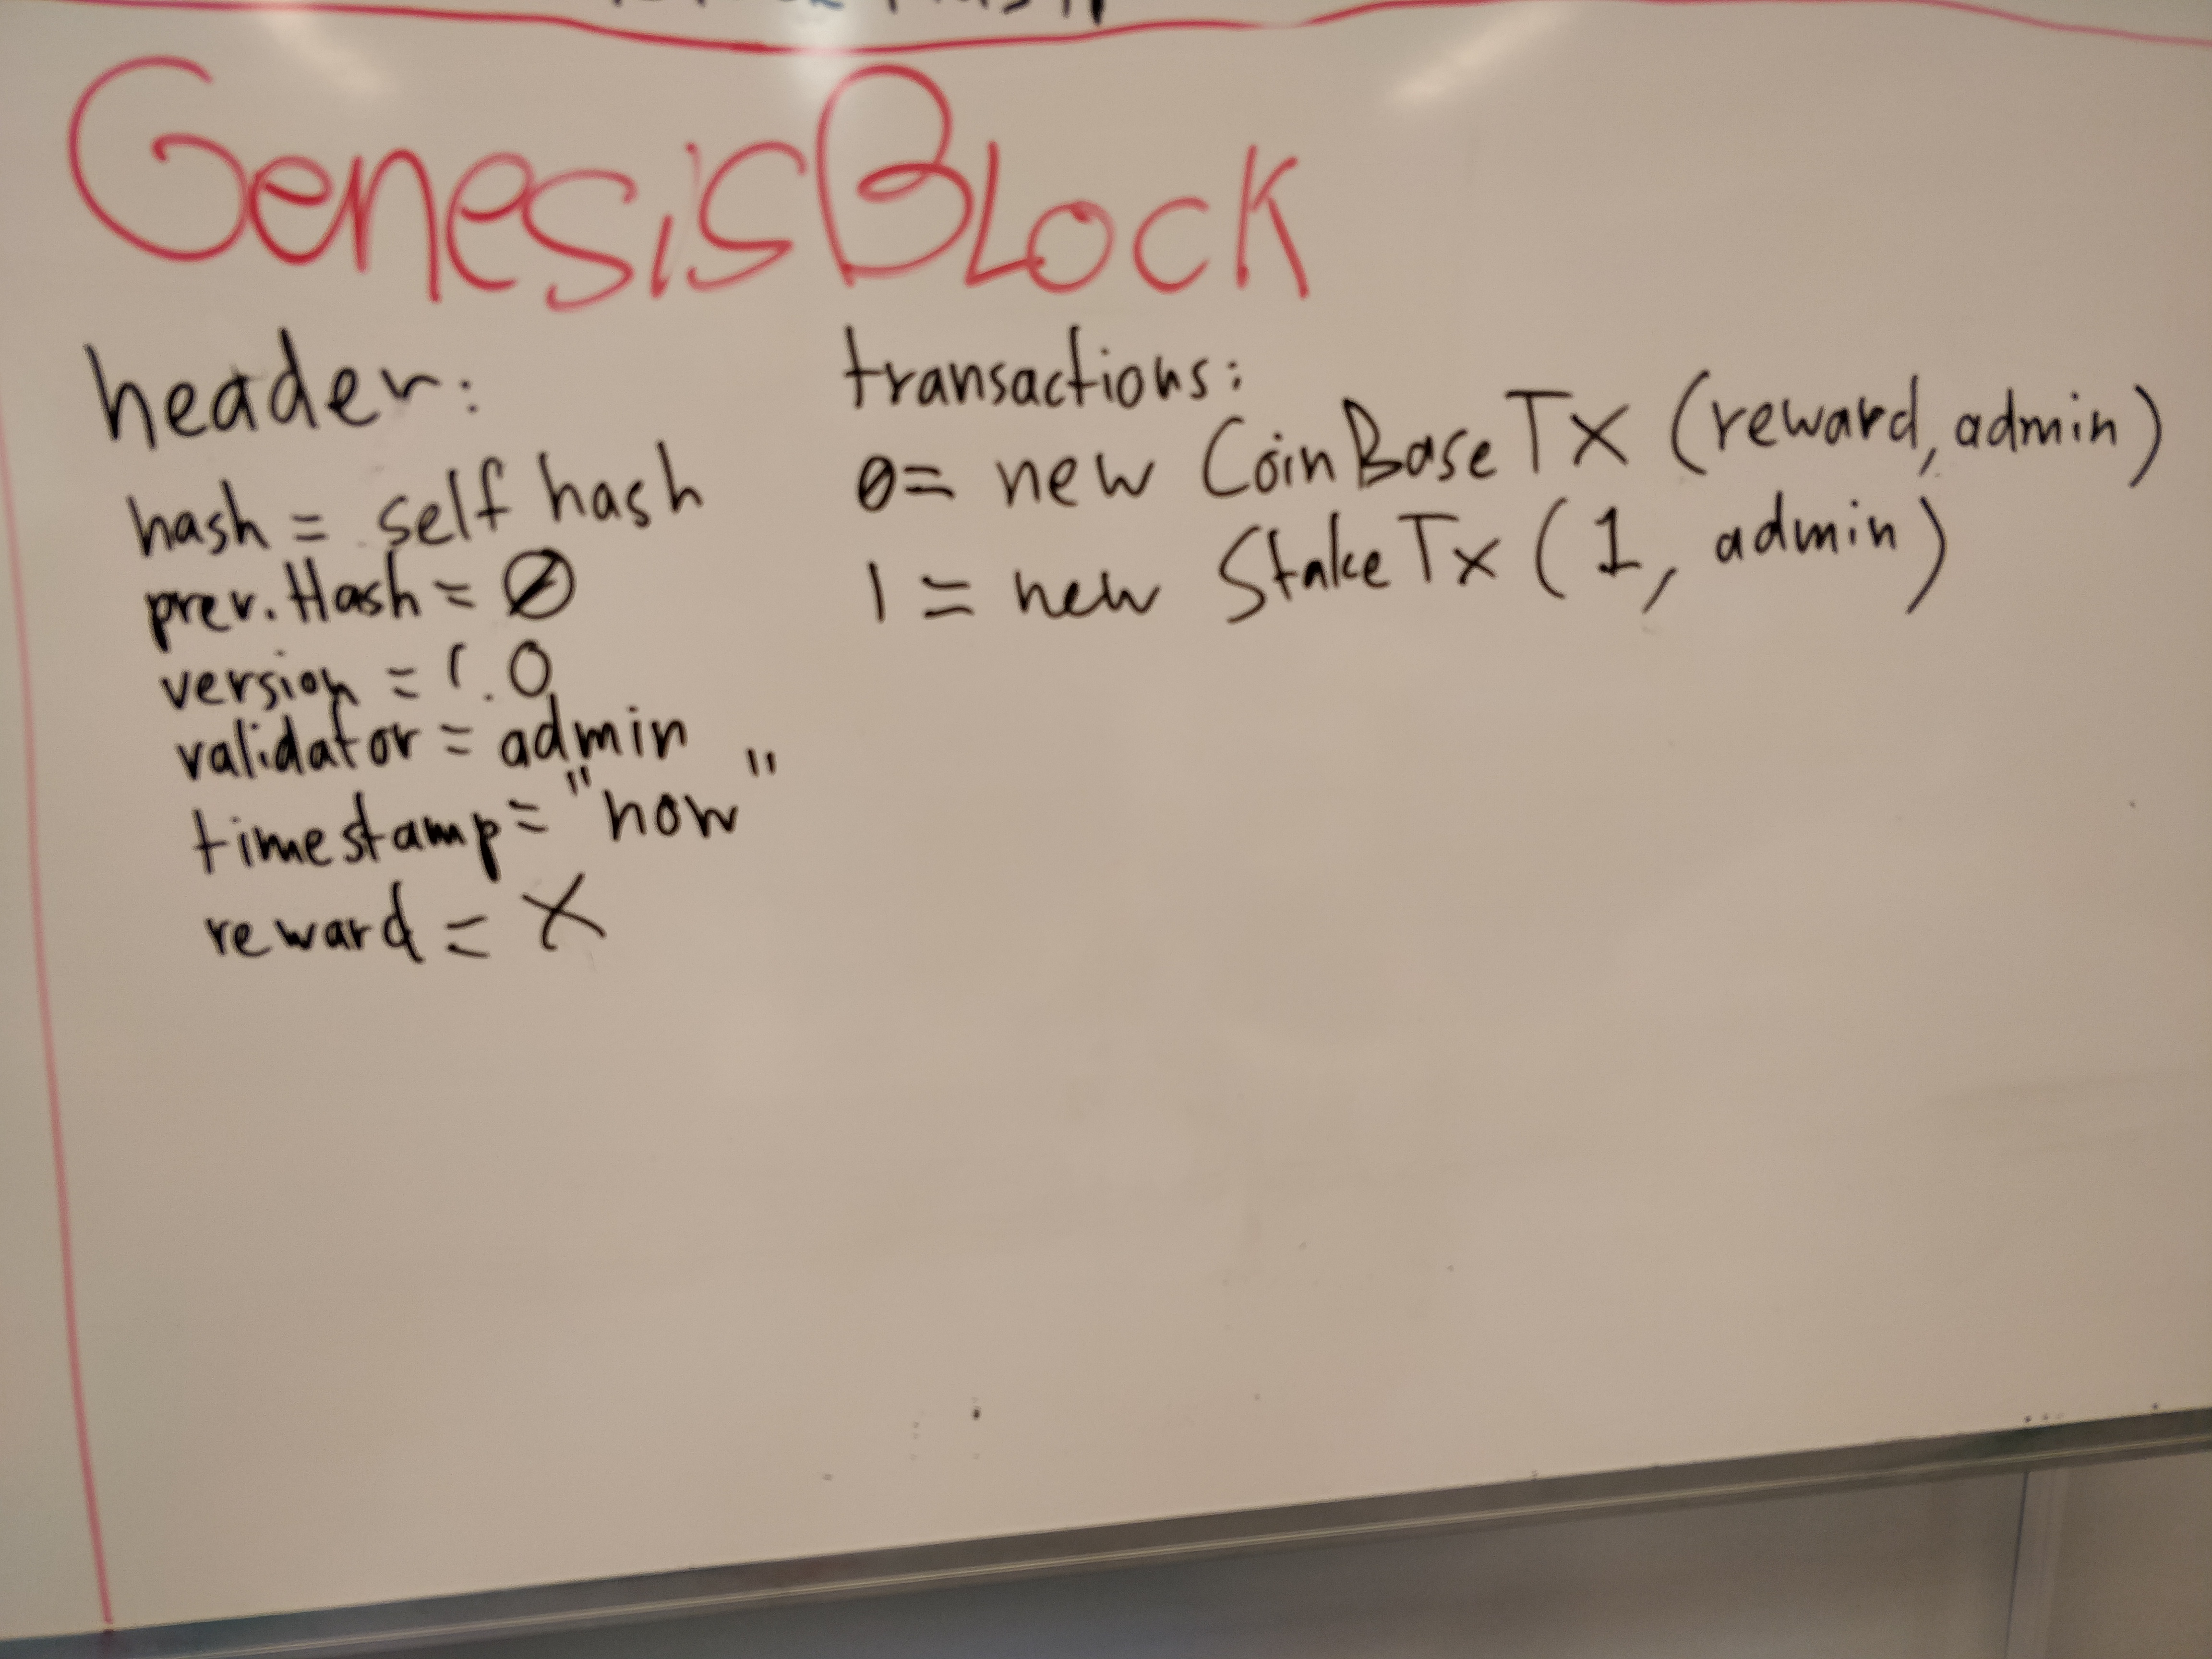 GenesisBLock
header:
hash = self hash
prev.Hash = Ø
version = 1.0
validator = admin
timestamp = "now"
reward = X
transactions:
0 = new CoinBaseTX (reward, admin)
1 = new StakeTx (1, admin)